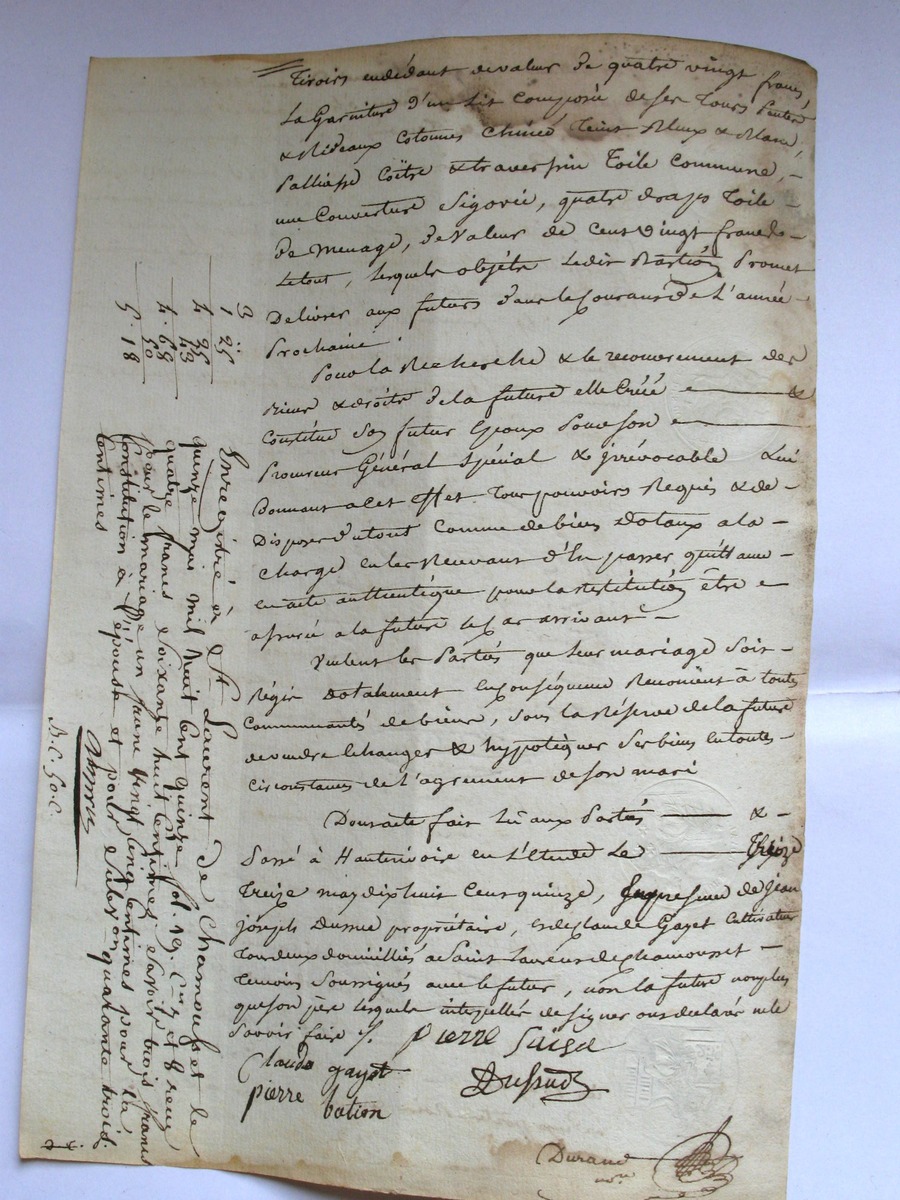 Tiroirs endédant de valeur de quatre vingt francs
La Garniture d'un Lit Composée de ses Tours pente
& Rideaux Cotonnes Chinée teint Bleux & Blanc,
Palliasse Coëtre & traversin Toile Commune,
une Couverture Sigovie, quatre draps Toile
de menage, de valeur de Cent vingt francs
Letout, lesquels objéts Ledit Bastion Promet
Delivrer aux futurs dans le Courant de L'année
Prochaine
Pour la Recherche & le recouvrement des
Biens & droits de la future elle Créé &
Constitue Son futur Epoux Pour son
Procureur Général Spécial & irrévocable Lui
Donnant a cet Effet Tous pouvoirs Requis & de
Disposer du tout Comme de biens Dotaux a la
Charge en les Recevant d'En passer quittance
en acte authentique pour la restitution être
assurée a la future le Cas arrivant
Veulent les Partiés que leur mariage Soit
Régis Dotalement En Conséquence Renoncent à toutes
Communautés de biens, Sous la Réserve de la future
de vendre Echanger & hypotéquer Ses biens en toutes
Circonstances de L'agrement de Son mari
Dont acte fait Lu aux Partiés &
Passé à Hauterivoire en L'Etude Le Treize
Treize may dix huit Cent quinze, En presence de Jean
joseph propriétaire, & de Claude Gayet Cultivateur
Tous deux domiciliés a Saint Laurent de chamousset
Temoins Soussignés avec le futur, non la future non plus
que son père lesquels interpellés de signer ont declaré ne le
Savoir faire /.
pierre
Claude gayet
pierre bation
Durand
nore
3 "
1 25
4 25
43
4. 68
50
5. 18
Enregistré à St Laurent de Chamousset le
quinze mai mil huit Cent quinze fol. 19. Cses et 8 reçu
quatre francs Soixante huit Centimes Savoir trois francs
pour le mariage un franc vingt Cinq Centimes pour la
Constitution à l'épouse et pour Sub-von quarante trois
Centimes
D. C. 50. C.